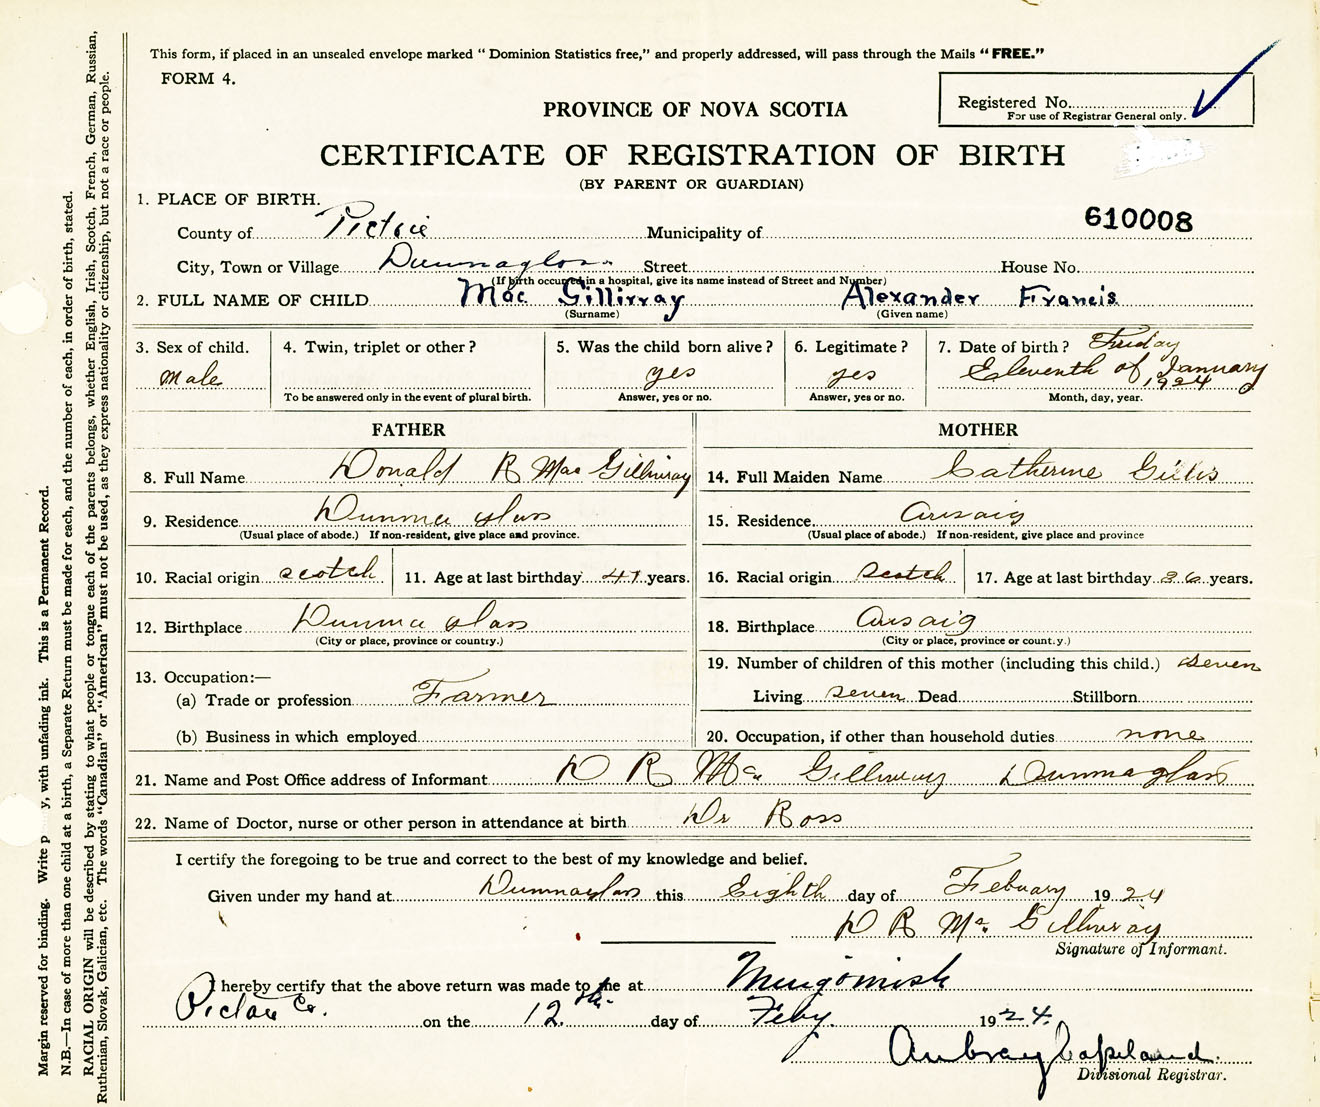 This form, if placed in an unsealed envelope marked " Dominion Statistics free," and properly addressed, will pass through the Mails "FREE."
FORM 4.
Registered No.
For use of Registrar General only.
PROVINCE OF NOVA SCOTIA
CERTIFICATE OF REGISTRATION OF BIRTH
(BY PARENT OR GUARDIAN)
1. PLACE OF BIRTH.
610008
County of Pictou Municipality of
City, Town or Village Dunmaglass Street House No.
(If birth occurred in a hospital, give its name instead of Street and Number)
2. FULL NAME OF CHILD Mac Gillivray Alexander Francis
(Surname) (Given name)
3. Sex of child. 4. Twin, triplet or other? 5. Was the child born alive? 6. Legitimate? 7. Date of birth? Friday
Male yes yes Eleventh of January
1924
To be answered only in the event of plural birth. Answer, yes or no. Answer, yes or no. Month, day, year.
FATHER MOTHER
8. Full Name Donald R MacGillivray 14. Full Maiden Name Catherine Gillis
9. Residence Dunmaglass 15. Residence Arisaig
(Usual place of abode.) If non-resident, give place and province. (Usual place of abode.) If non-resident, give place and province
10. Racial origin scotch 11. Age at last birthday 47 years. 16. Racial origin Scotch 17. Age at last birthday 36 years.
12. Birthplace Dunmaglass 18. Birthplace Arisaig
(City or place, province or country.) (City or place, province or country.)
19. Number of children of this mother (including this child.) seven
13. Occupation:—
(a) Trade or profession Farmer Living seven Dead Stillborn
(b) Business in which employed 20. Occupation, if other than household duties none
21. Name and Post Office address of Informant D R Mac Gillivray Dunmaglass
22. Name of Doctor, nurse or other person in attendance at birth Dr Ross
I certify the foregoing to be true and correct to the best of my knowledge and belief.
Given under my hand at Dunmaglass this Eighth day of Febuary 1924
D R Mc Gillivray
Signature of Informant.
I hereby certify that the above return was made to me at Merigomish
Pictou Co. on the 12th. day of Feby. 1924.
Aubrey Copeland.
Divisional Registrar.
Margin reserved for binding. Write p y, with unfading ink. This is a Permanent Record.
N.B.—In case of more than one child at a birth, a Separate Return must be made for each, and the number of each, in order of birth, stated.
RACIAL ORIGIN will be described by stating to what people or tongue each of the parents belongs, whether English, Irish, Scotch, French, German, Russian,
Ruthenian, Slovak, Galician, etc. The words "Canadian" or "American" must not be used, as they express nationality or citizenship, but not a race or people.